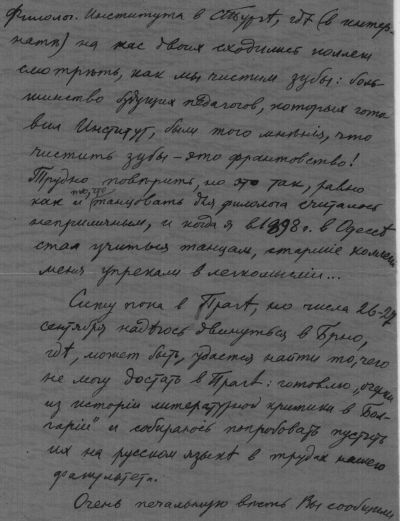 филолог. Института в СПбургѣ, гдѣ (в интер-
натѣ) на нас двоих сходились коллеги
смотрѣть, как мы чистим зубы: боль-
шинство будущих педагогов, которых гото-
вил Институт, были того мнѣнія, что
чистить зубы – это франтовство!
Трудно повѣрить, но это так, равно
как и то, что танцовать для филолога считалось
неприличным, и когда я в 1898 г. в Одессѣ
стал учиться танцам, старшіе коллеги
меня упрекали в легкомысліи...
Сижу пока в Прагѣ, но числа 26-27
сентября надѣюсь двинуться в Брно,
гдѣ, может быть, удастся найти то, чего
не могу достать в Прагѣ: готовлю „очерки
из исторіи литературной критики в Бол-
гаріи" и собираюсь попробовать пустить
их на русском языкѣ в трудах нашего
факультета.
Очень печальную вѣсть Вы сообщили